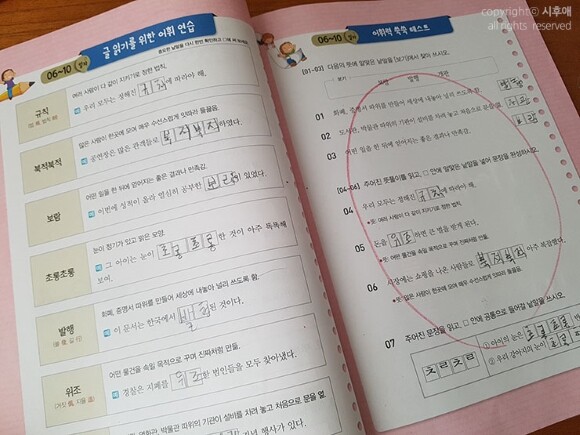 copyrightⓒ 시후애
all rights reserved
글 읽기를 위한 어휘 연습
06~10
중요한 낱말을 다시 한번 확인하고
규칙
여러 사람이 다 같이 지키기로 정한 법칙.
예 우리 모두는 정해진 규칙에 따라야 해.
북적북적
많은 사람이 한곳에 모여 매우 수선스럽게 잇따라 들끓음.
예 공연장은 많은 관객들로 북적북적하였다.
보람
어떤 일을 한 뒤에 얻어지는 좋은 결과나 만족감.
예 이번에 성적이 올라 열심히 공부한 보람이 있었다.
초롱초롱
눈이 정기가 있고 맑은 모양.
예 그 아이는 눈이 초롱초롱한 것이 아주 똑똑해
보여.
발행
화폐, 증명서 따위를 만들어 세상에 내놓아 널리 쓰도록 함.
예 이 문서는 한국에서 발행된 것이다.
위조
어떤 물건을 속일 목적으로 꾸며 진짜처럼 만듦.
예 경찰은 지폐를 위조한 범인들을 모두 찾아냈다.
박물관 따위의 기관이 설비를 차려 놓고 처음으로 문을 엶.
기념 행사가 있다.
어휘력 쑥쑥 테스트
06~10
[01~03] 다음의 뜻에 알맞은 낱말을 [보기]에서 찾아 쓰시오.
보기
보람 발행 개관
01 화폐, 증명서 따위를 만들어 세상에 내놓아 널리 쓰도록 함. 발행
02 도서관, 박물관 따위의 기관이 설비를 차려 놓고 처음으로 문을 엶. 개관
03 어떤 일을 한 뒤에 얻어지는 좋은 결과나 만족감. 보람
[04~06] 주어진 뜻풀이를 읽고, □ 안에 알맞은 낱말을 넣어 문장을 완성하시오.
04 우리 모두는 정해진 규칙에 따라야 해.
뜻: 여러 사람이 다 같이 지키기로 정한 법칙.
05 돈을 위조하면 큰 벌을 받게 된다.
뜻: 어떤 물건을 속일 목적으로 꾸며 진짜처럼 만듦.
06 시장에는 쇼핑을 나온 사람들로 북적북적 아주 복잡했다.
뜻: 많은 사람이 한곳에 모여 매우 수선스럽게 잇따라 들끓음.
07 주어진 문장을 읽고, □ 안에 공통으로 들어갈 낱말을 쓰시오.
ㅊㄹㅊㄹ
① 아이의 눈은 초롱초롱
② 우리 강아지의 눈이 초롱